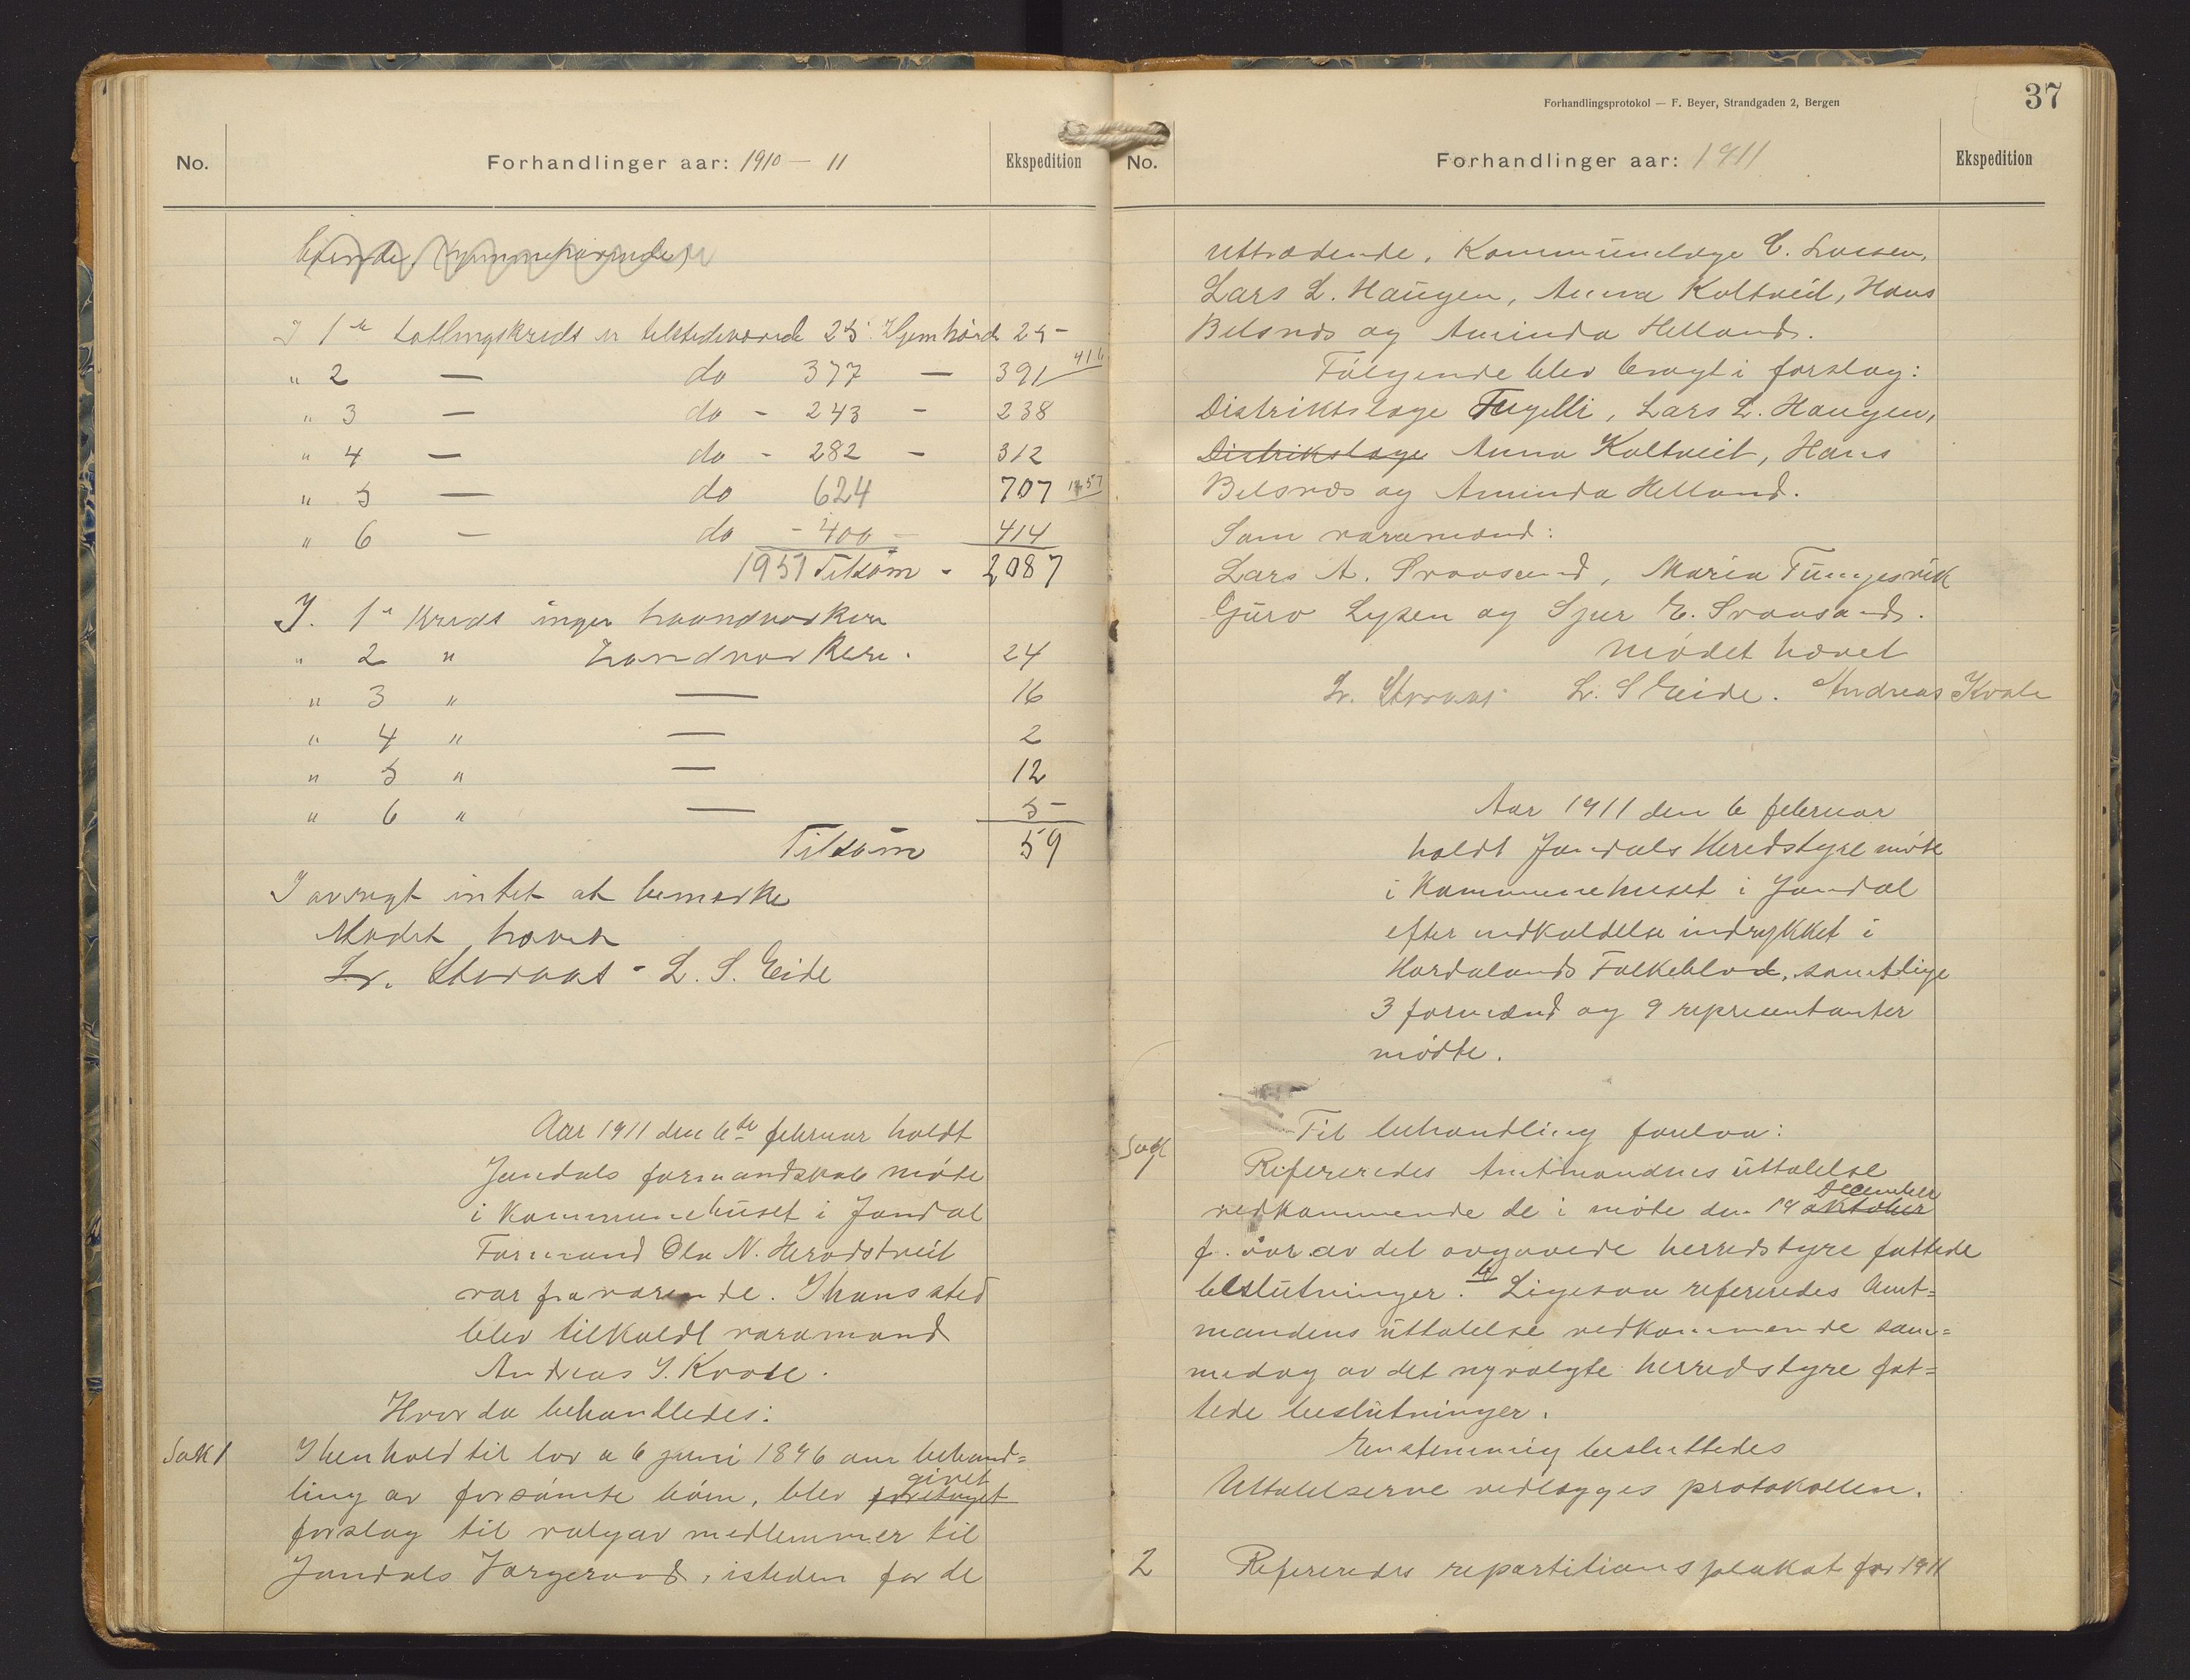 No.
Forhandlinger aar: 1910 — 11
Ekspedition
I 1ste tællingskreds er tilstedeværende 25 Hjemhörende 25 -
" 2 — do 377 — 391 416
" 3 — do - 243 - 238
" 4 — do - 282 - 312
" 5 — do 624 707 1457
" 6 — do - 400 - 414
1951 Tilsam - 2087
I. 1ste Kreds ingen haandverkere
" 2 " handverkere. 24
" 3 " — 16
" 4 " — 2
" 5 " — 12
" 6 " — 5 -
Tilsam 59
I øvrigt intet at bemærke
Mødet hævet
Lr. Storaas - L. S. Eide
Aar 1911 den 6te februar holdt
Jondals formandskab møte
i Kommunehuset i Jondal
Formand Ola N. Herodstveit
var fraværende. I hans sted
blev tilkaldt varamand
Andreas J. Kvale.
Hvor da behandledes:
Sak 1
I henhold til lov a 6 juni 1896 om behand=
ling av forsømte børn, blev foretaget givet
forslag til valg av medlemmer til
Jondals Vergeraad, isteden for de
Forhandlingsprotokol — F. Beyer, Strandgaden 2, Bergen
37
No.
Forhandlinger aar: 1911
Ekspedition
uttrædende, Kommunelæge C. Lassen,
Lars L. Haugen, Anna Koltveit, Hans
Belsnes og Aminda Helland.
Følgende blev bragt i forslag:
Distriktslæge Fugelli, Lars L. Haugen,
Distrikslæge Anna Koltveit, Hans
Belsnes og Aminda Helland.
Som varamænd:
Lars A. Svaasand, Maria Tungesvik
Guro Lysen og Sjur E. Svaasand.
Mødet hævet
Lr. Storaas L. S Eide. Andreas Kvale
Aar 1911 den 6 februar
holdt Jondals Heredstyre møte
i Kommunehuset i Jondal
efter indkaldelse indrykket i
Hordalands Folkeblad, samtlige
3 formænd og 9 represententer
mødte.
Til behandling forelaa:
Sak 1
Refereredes Amtmandens uttalelse
vedkommende de i møte den 19 oktober December
f. aar av det avgaaede herredstyre fattede
beslutninger. 4 Ligesaa refereredes Amt=
mandens uttalelse vedkommende sam=
medag av det nyvalgte herredstyre fat=
tede beslutninger.
Enstemmig besluttedes
Uttalelserne vedlægges protokollen.
2
Refereredes repartitionsplakat for 1911